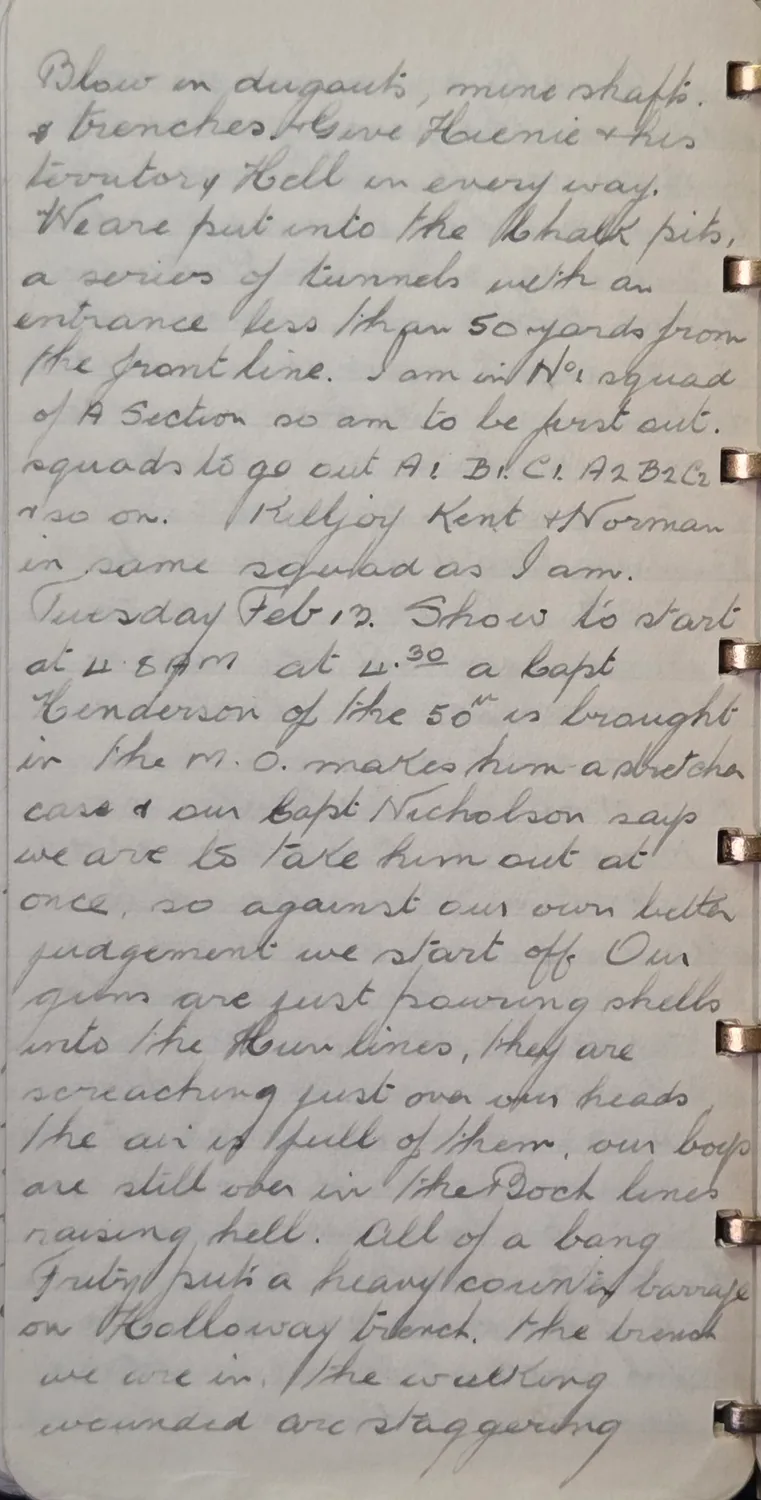 Blow in dugouts, mine shafts.
& trenches. & Give Hienie & his
territory Hell in every way.
We are put into the Chalk pits,
a series of tunnels with an
entrance less than 50 yards from
the front line. I am in No 1 squad
of A Section so am to be first out.
squads to go out A1 B1. C1. A2 B2 C2
& so on. Killjoy Kent & Norman
in same squad as I am.
Tuesday Feb 13. Show to start
at 4.8 AM at 4.30 a Capt
Henderson of the 50th is brought
in the M.O. makes him a stretcher
case & our Capt Nicholson says
we are to take him out at
once, so against our own better
judgement we start off. Our
guns are just pouring shells
into the Hun lines, they are
screaching just over our heads
the air is full of them, our boys
are still over in the Boch lines
raising hell. All of a bang
Fritz puts a heavy counter barrage
on Holloway trench. the trench
we are in. the walking
wounded are staggering